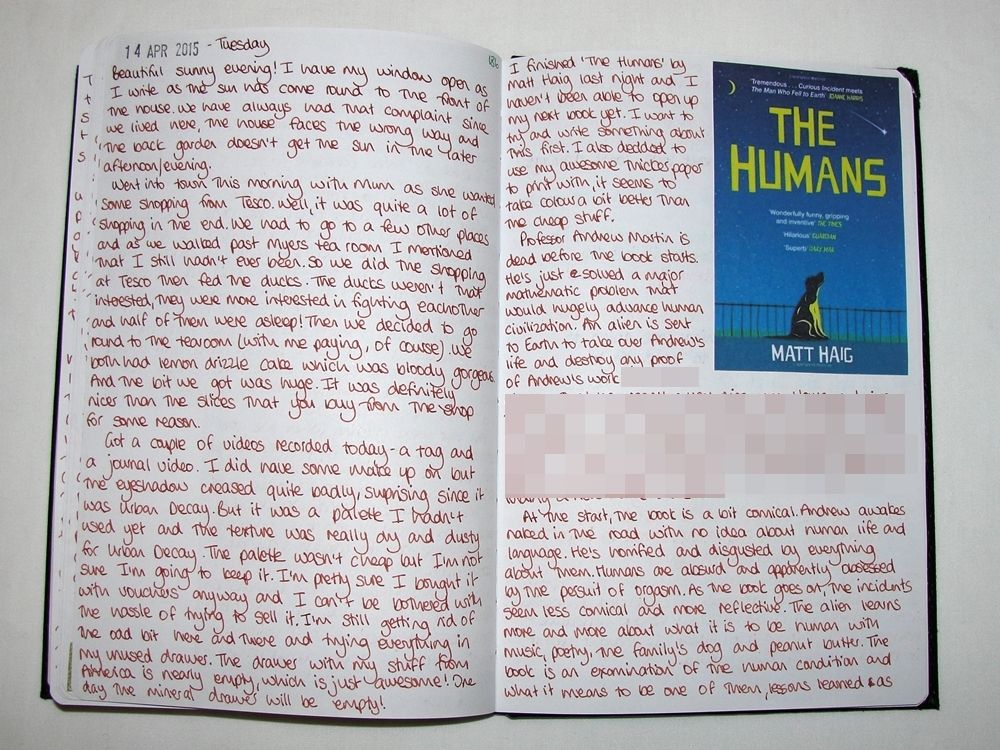 14 APR 2015 - Tuesday
Beautiful sunny evening! I have my window open as
I write as the sun has come round to the front of
the house. We have always had that complaint since
we lived here, the house faces the wrong way and
the back garden doesn't get the sun in the later
afternoon/evening.
Went into town this morning with Mum as she wanted
some shopping from Tesco. Well, it was quite a lot of
shopping in the end. We had to go to a few other places
and as we walked past Myers tea room I mentioned
that I still hadn't ever been. So we did the shopping
at Tesco then fed the ducks. The ducks weren't that
interested, they were more interested in fighting eachother
and half of them were asleep! Then we decided to go
round to the tearoom (with me paying, of course). We
both had lemon drizzle cake which was bloody gorgeous.
And the bit we got was huge. It was definitely
nicer than the slices that you buy from the shop
for some reason.
Got a couple of videos recorded today - a tag and
a journal video. I did have some make up on but
the eyeshadow creased quite badly, suprising since it
was Urban Decay. But it was a palette I hadn't
used yet and the texture was really dry and dusty
for Urban Decay. The palette wasn't cheap but I'm not
sure I'm going to keep it. I'm pretty sure I bought it
with vouchers anyway and I can't be bothered with
the hassle of trying to sell it. I'm still getting rid of
the odd bit here and there and trying everything in
my unused drawer. The drawer with my stuff from
America is nearly empty, which is just awesome! One
day the mineral drawer will be empty!
I finished 'The Humans' by
Matt Haig last night and I
haven't been able to open up
my next book yet. I want to
try and write something about
this first. I also decided to
use my awesome thicker paper
to print with, it seems to
take colour a bit better than
the cheap stuff.
Professor Andrew Martin is
dead before the book starts.
He's just solved a major
mathematic problem that
would hugely advance human
civilization. An alien is sent
to Earth to take over Andrew's
life and destroy any proof
of Andrew's work
At the start, the book is a bit comical. Andrew awakes
naked in the road with no idea about human life and
language. He's horrified and disgusted by everything
about them. Humans are absurd and apparently obsessed
by the persuit of orgasm. As the book goes on, the incidents
seem less comical and more reflective. The alien learns
more and more about what it is to be human with
music, poetry, the family's dog and peanut butter. The
book is an examination of the human condition and
what it means to be one of them, lessons learned as
'Tremendous . . . Curious Incident meets
The Man Who Fell to Earth' JOANNE HARRIS
THE
HUMANS
'Wonderfully funny, gripping
and inventive' THE TIMES
'Hilarious' GUARDIAN
'Superb' DAILY MAIL
MATT HAIG